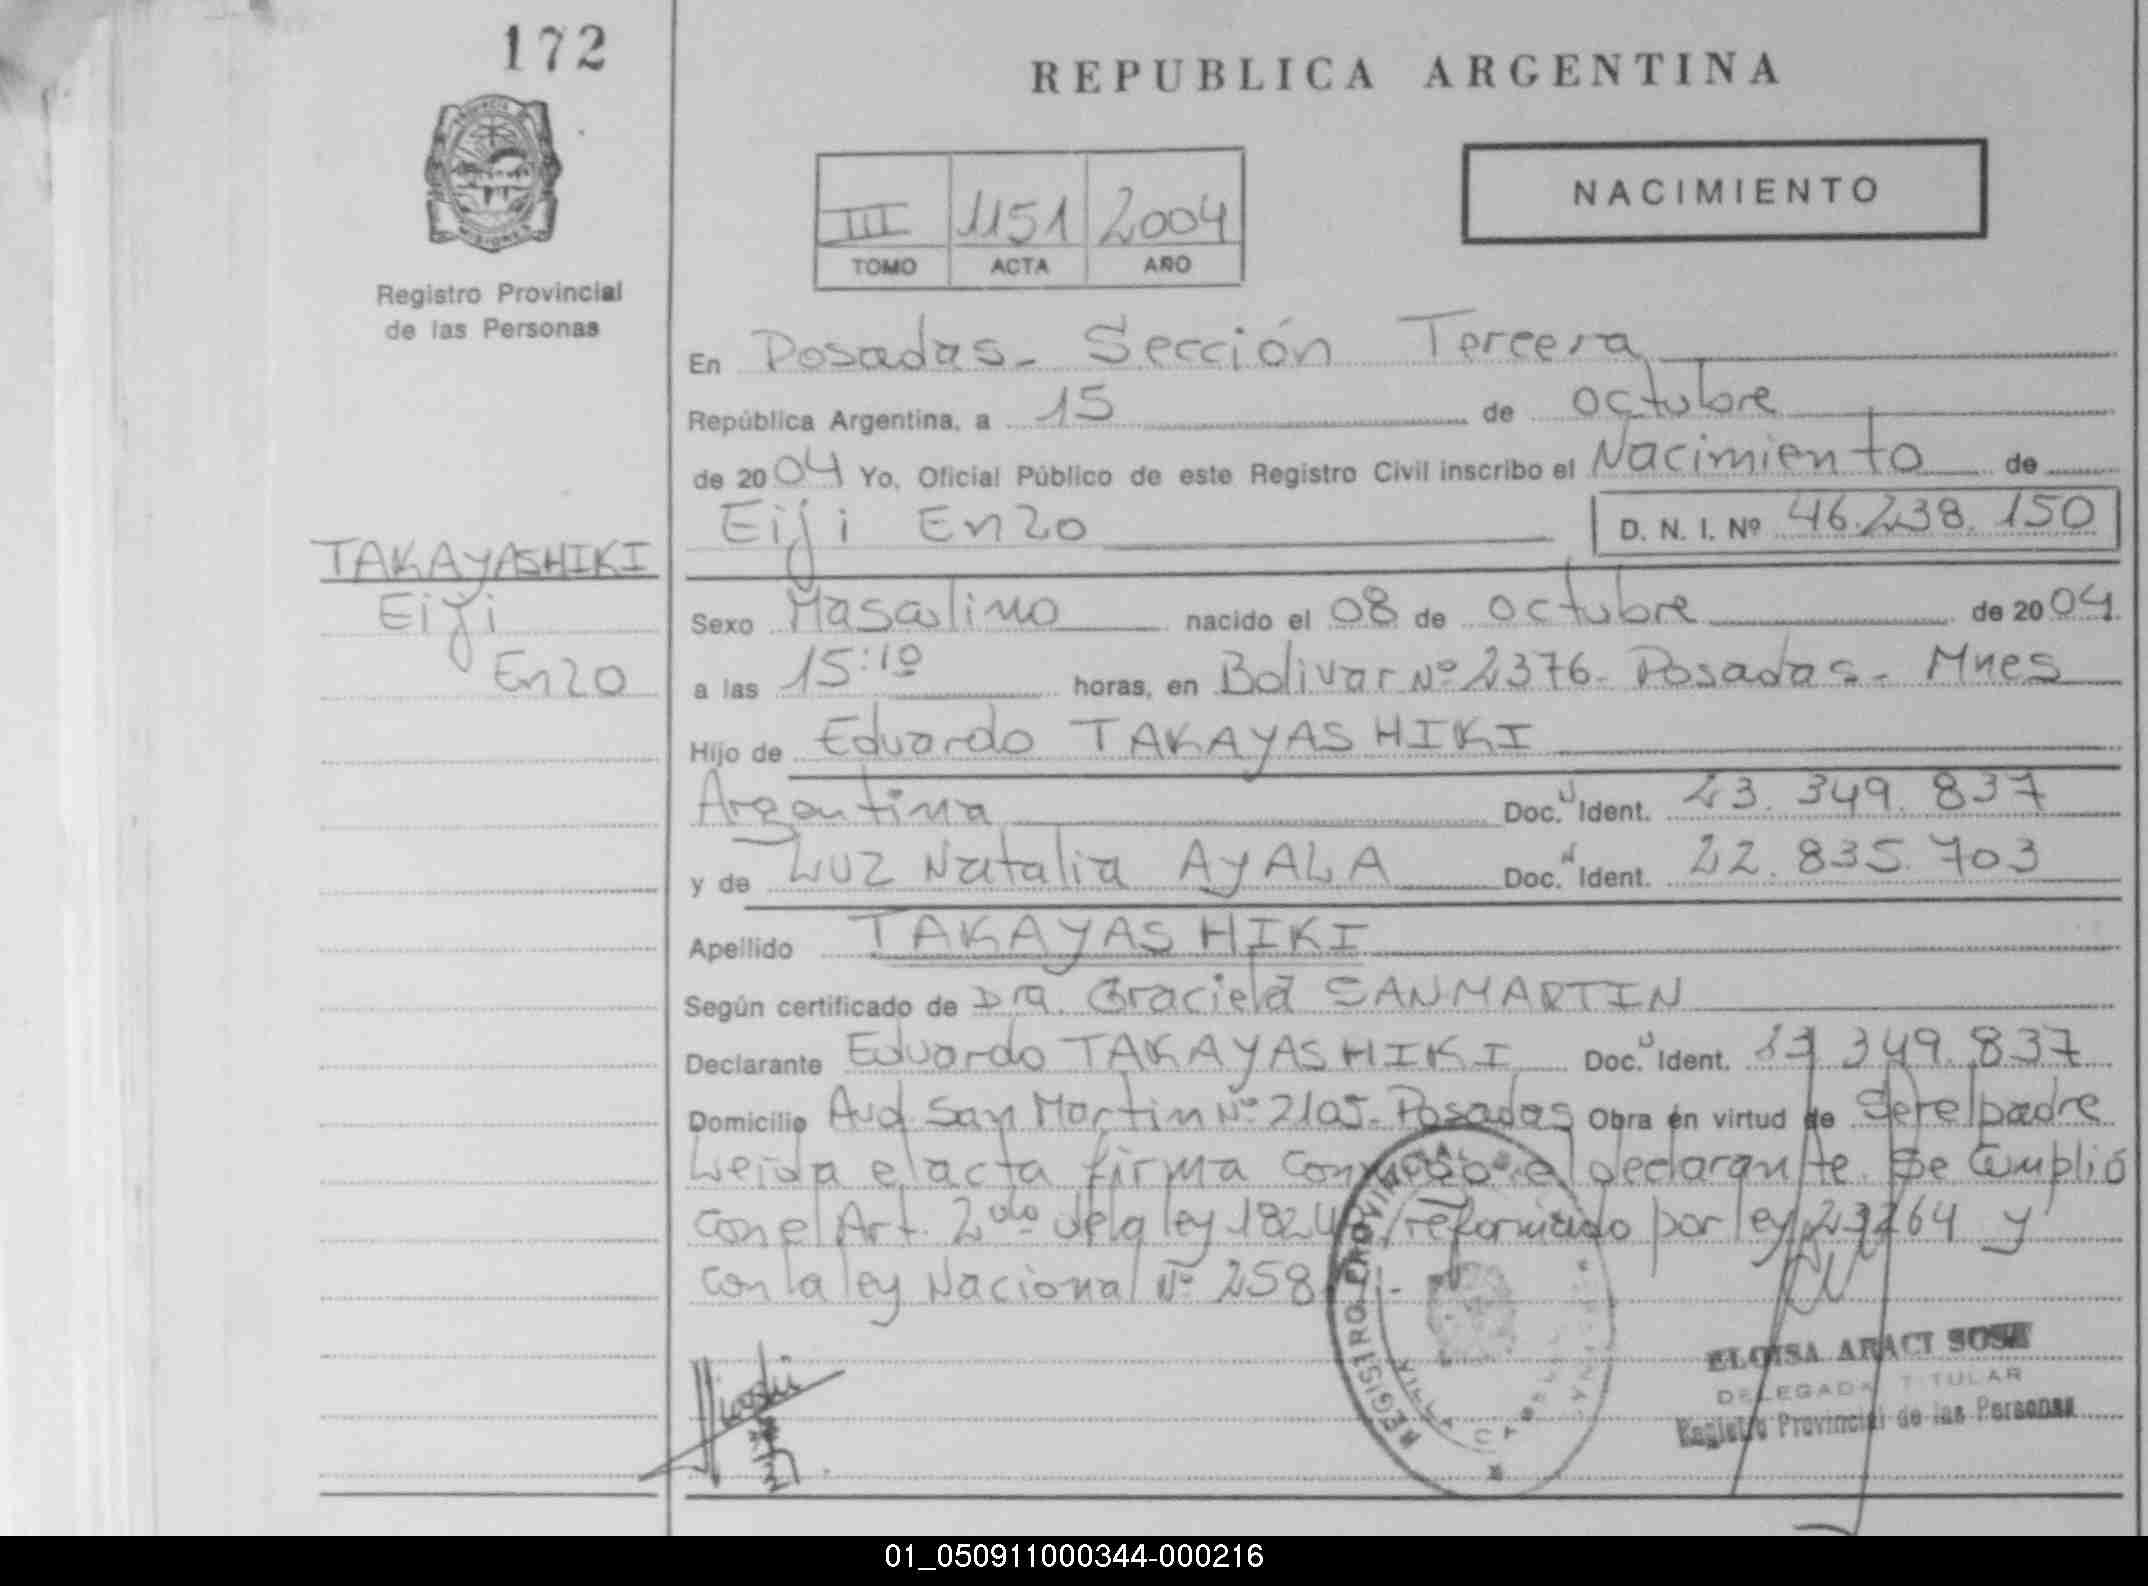 172
REPUBLICA ARGENTINA
NACIMIENTO
III 1151 2004
TOMO ACTA AÑO
MISIONES
Registro Provincial
de las Personas
En Posadas - Sección Tercera
República Argentina, a 15 de octubre
de 2004 Yo, Oficial Público de este Registro Civil inscribo el Nacimiento de
Eiji Enzo D. N. I. Nº 46.238.150
TAKAYASHIKI
Eiji
Enzo
Sexo Masculino nacido el 08 de octubre de 2004.
a las 15:10 horas, en Bolivar Nº 2376 - Posadas - Mnes
Hijo de Eduardo TAKAYASHIKI
Argentina Doc. Ident. 23.349.837
y de Luz Natalia AYALA Doc. Ident. 22.835.703
Apellido TAKAYASHIKI
Según certificado de Dra. Graciela SANMARTIN
Declarante Eduardo TAKAYASHIKI Doc. Ident. 23.349.837
Domicilio Avd San Martin Nº 2105 - Posadas Obra en virtud de Ser el padre
Leida el acta firma conmigo el declarante. Se Cumplió
con el Art. 2do de la ley 1824 reformado por ley 23264 y
con la ley Nacional Nº 258
REGISTRO PROVINCIAL
VILLA
ELOISA ARACI SOSA
DELEGADA TITULAR
Registro Provincial de las Personas
01_050911000344-000216